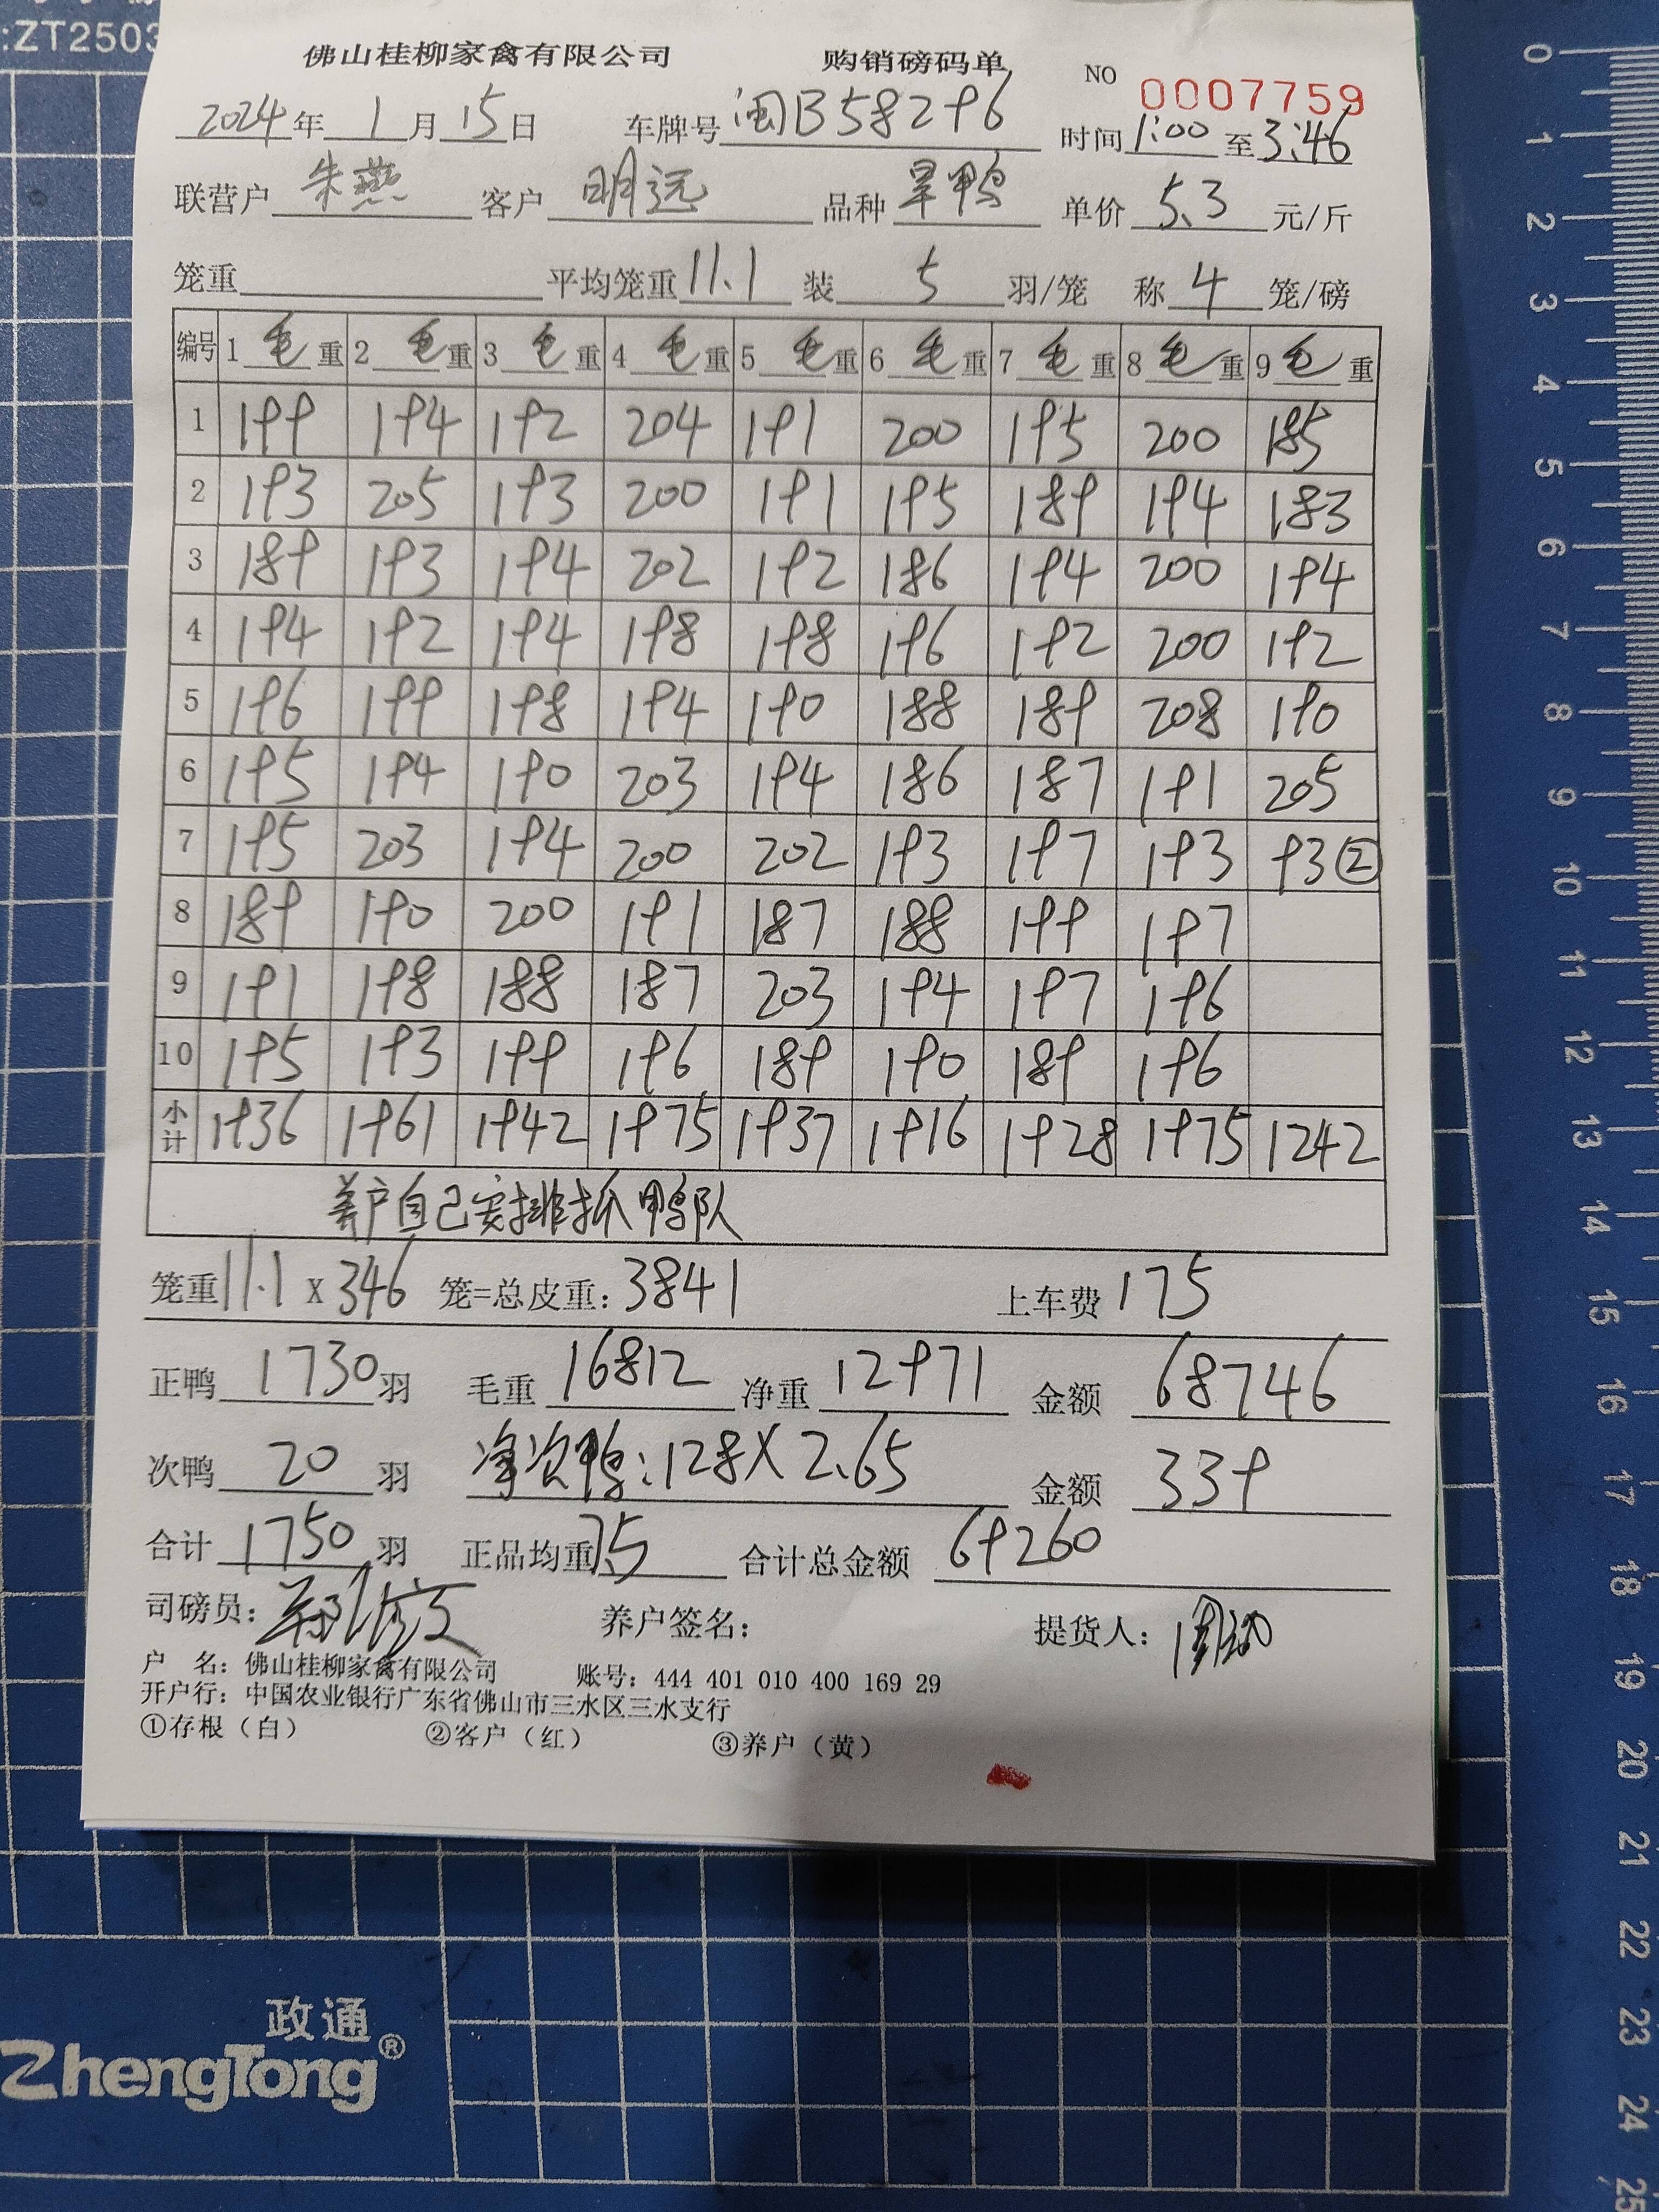 :ZT2503
佛山桂柳家禽有限公司 购销磅码单 NO 0007759
2024年1月15日 车牌号 闽B58296 时间 1:00 至 3:46
联营户 朱燕 客户 明远 品种 旱鸭 单价 5.3 元/斤
笼重 平均笼重 11.1 装 5 羽/笼 称 4 笼/磅
编号 1 毛重 2 毛重 3 毛重 4 毛重 5 毛重 6 毛重 7 毛重 8 毛重 9 毛重
1 199 194 192 204 191 200 195 200 185
2 193 205 193 200 191 195 189 194 183
3 189 193 194 202 192 186 194 200 194
4 194 192 194 198 198 196 192 200 192
5 196 199 198 194 190 188 189 208 190
6 195 194 190 203 194 186 187 191 205
7 195 203 194 200 202 193 197 193 93②
8 189 190 200 191 187 188 199 197
9 191 198 188 187 203 194 197 196
10 195 193 199 196 189 190 189 196
小计 1936 1961 1942 1975 1937 1916 1928 1975 1242
养户自己安排抓鸭队
笼重 11.1 X 346 笼=总皮重: 3841 上车费 175
正鸭 1730 羽 毛重 16812 净重 12971 金额 68746
次鸭 20 羽 净次鸭:128X2.65 金额 339
合计 1750 羽 正品均重 7.5 合计总金额 69260
司磅员: 养户签名: 提货人:
户 名: 佛山桂柳家禽有限公司 账号: 444 401 010 400 169 29
开户行: 中国农业银行广东省佛山市三水区三水支行
①存根（白） ②客户（红） ③养户（黄）
政通
ZhengTong®
0
1
2
3
4
5
6
7
8
9
10
11
12
13
14
15
16
17
18
19
20
21
22
23
24
25